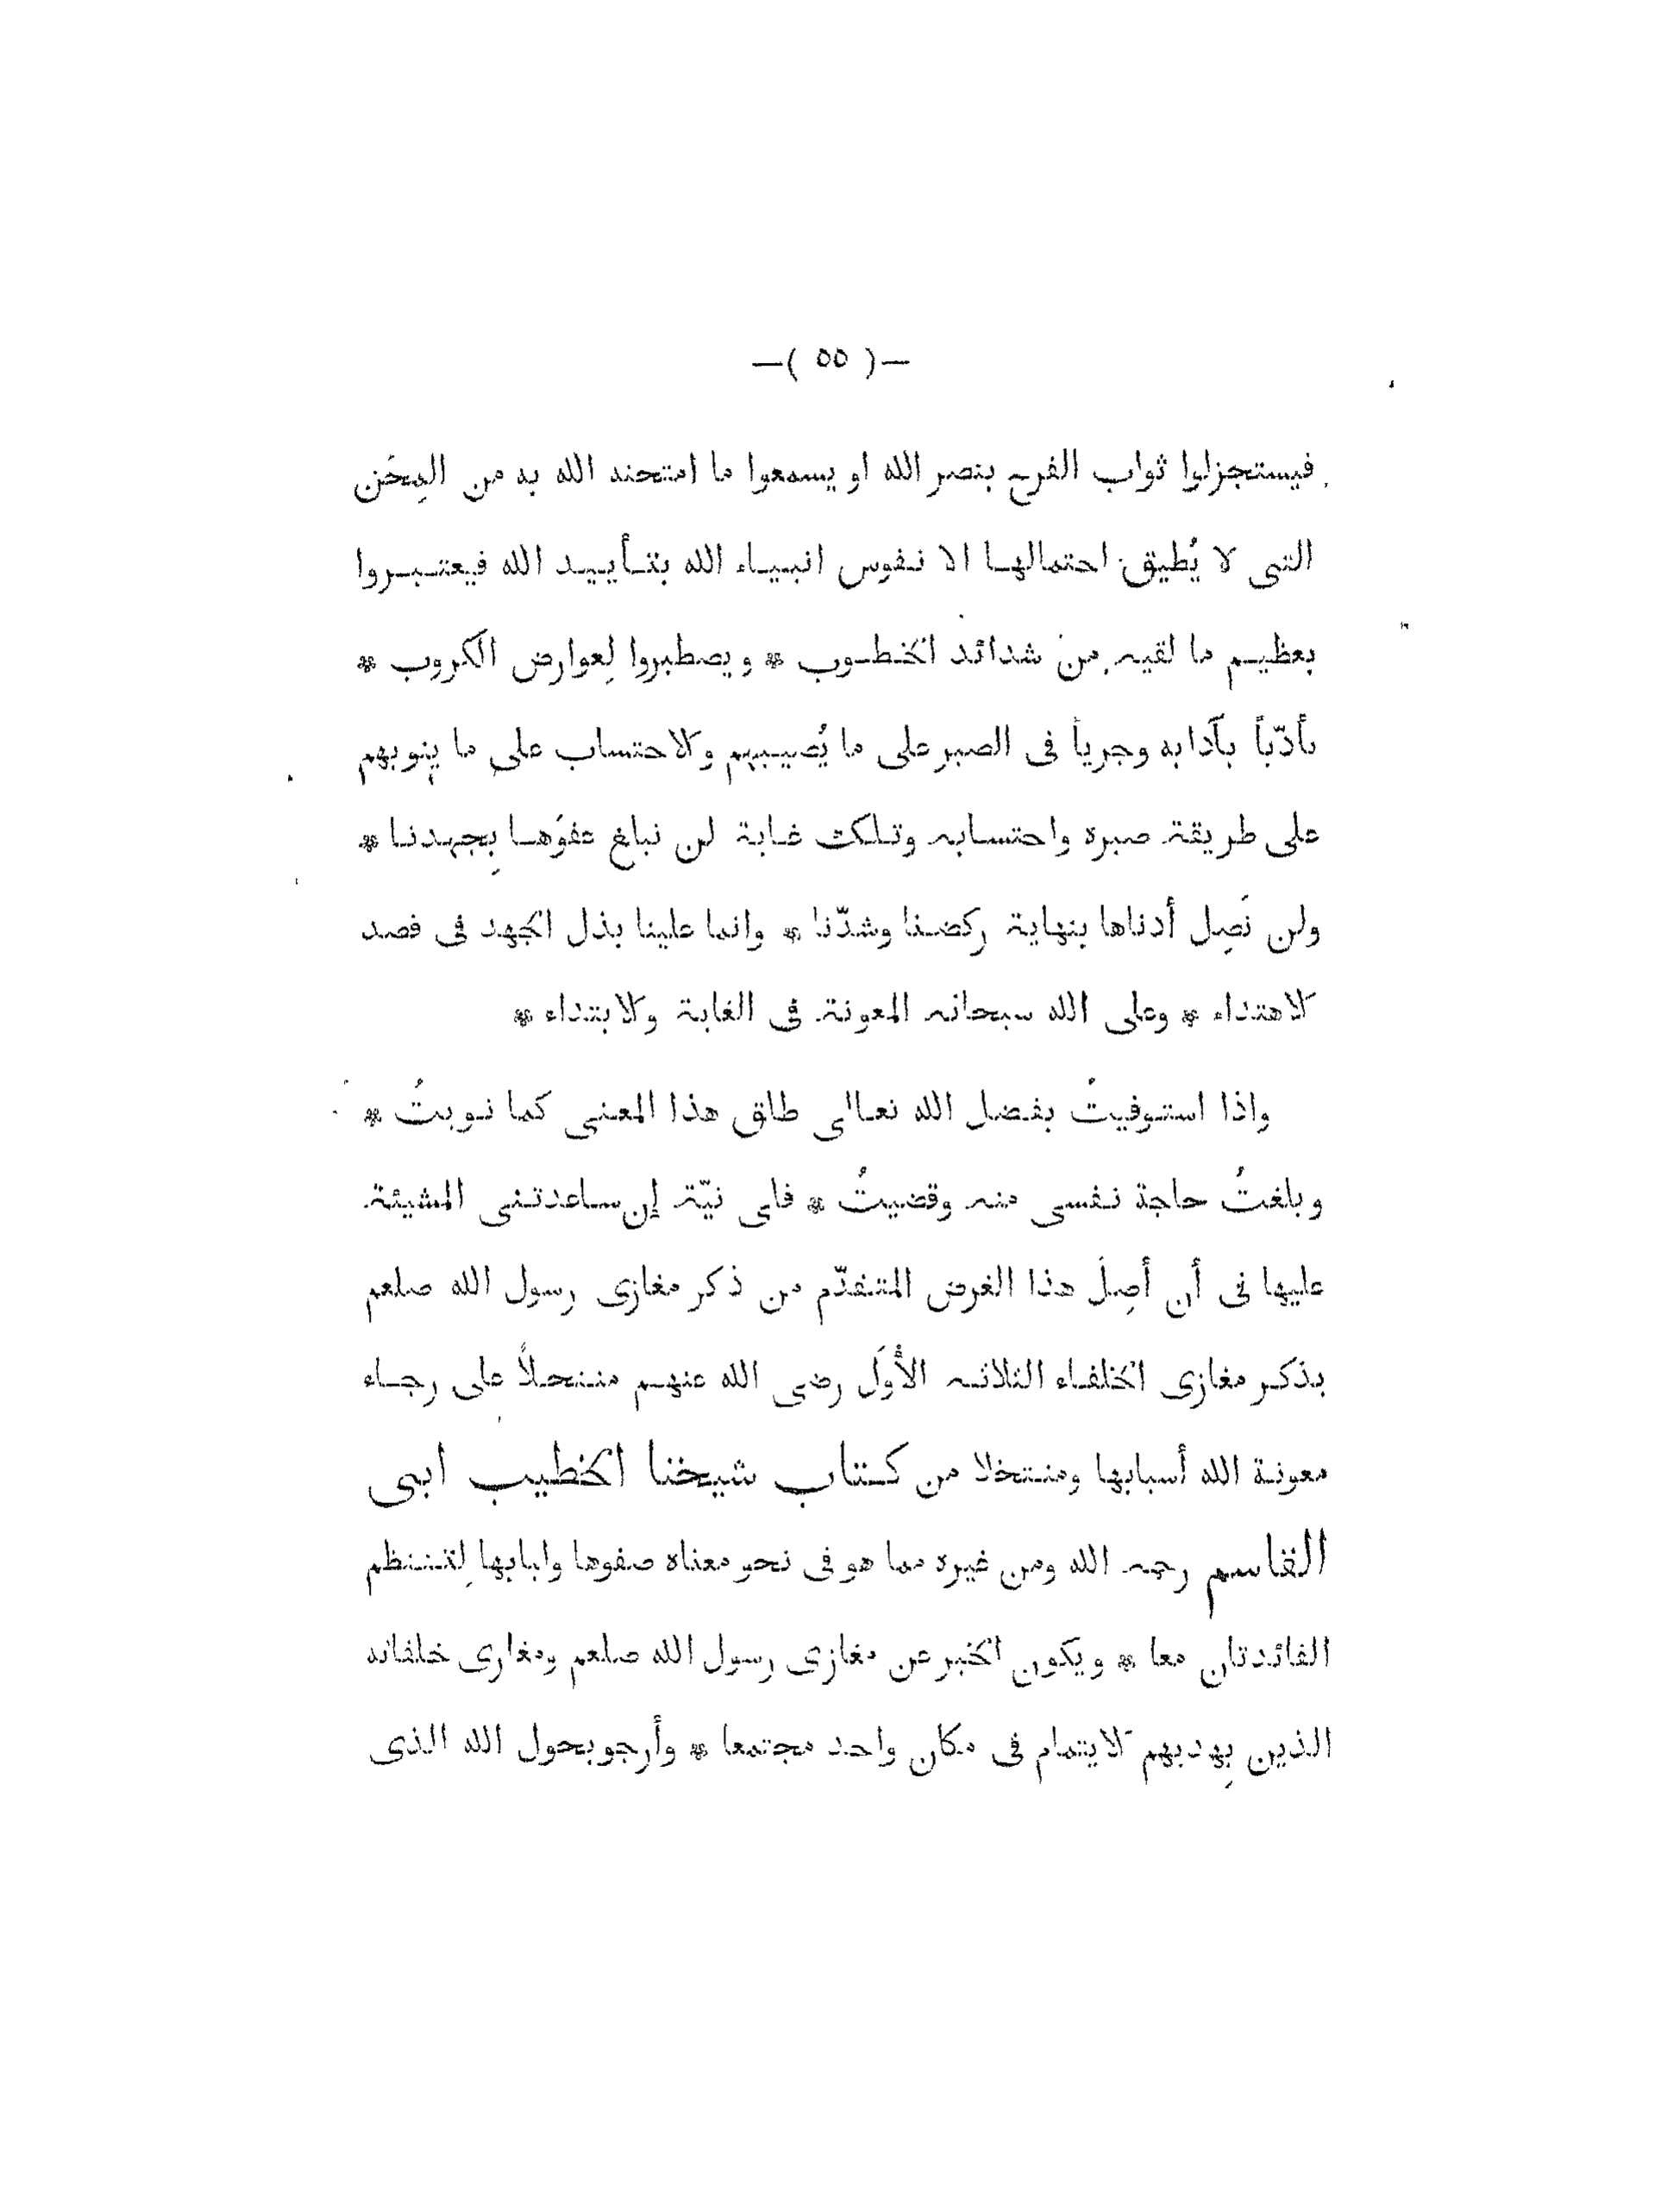 —( ٥٥ )—
فيستجزلوا ثواب الفرح بنصر الله او يسمعوا ما امتحنه الله به من المِحَن
التى لا يُطيق احتمالها الا نفوس انبياء الله بتأييد الله فيعتبروا
بعظيم ما لقيه من شدائد الخطوب * ويصطبروا لِعوارض الكروب *
تأدّباً بآدابه وجرياً فى الصبر على ما يُصيبهم والاحتساب على ما ينوبهم
على طريقة صبره واحتسابه وتلك غاية لن نبلغ عفوَها بِجهدنا *
ولن نَصِل أدناها بنهاية ركضنا وشدّنا * وانما علينا بذل الجهد فى قصد
الاهتداء * وعلى الله سبحانه المعونة فى الغاية والابتداء *
واذا استوفيتُ بفضل الله تعالى طلق هذا المعنى كما نويتُ *
وبلغتُ حاجة نفسى منه وقضيتُ * فلى نيّة إن ساعدتنى المشيئة
عليها فى أن أصِلَ هذا الغرض المتقدّم من ذكر مغازى رسول الله صلعم
بذكر مغازى الخلفاء الثلاثه الأُوَل رضى الله عنهم منتحلاً على رجاء
معونة الله أسبابها ومنتخلا من كتاب شيخنا الخطيب ابى
القاسم رحمه الله ومن غيره مما هو فى نحو معناه صفوها ولبابها لِتنتظم
الفائدتان معا * ويكون الخبر عن مغازى رسول الله صلعم ومغازى خلفائه
الذين بِهديهم الايتمام فى مكان واحد مجتمعا * وأرجو بحول الله الذى